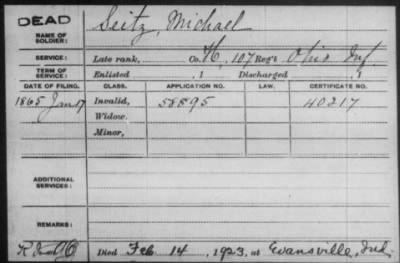 DEAD
Seitz, Michael
NAME OF SOLDIER:
SERVICE: Late rank, Co. H, 107 Reg't Ohio Inf
TERM OF SERVICE: Enlisted , 1 Discharged , 1
DATE OF FILING. CLASS. APPLICATION NO. LAW. CERTIFICATE NO.
1865 Jan 17 Invalid, 58895 40217
Widow.
Minor,
ADDITIONAL SERVICES:
REMARKS:
Died Feb 14, 1923, at Evansville, Ind.